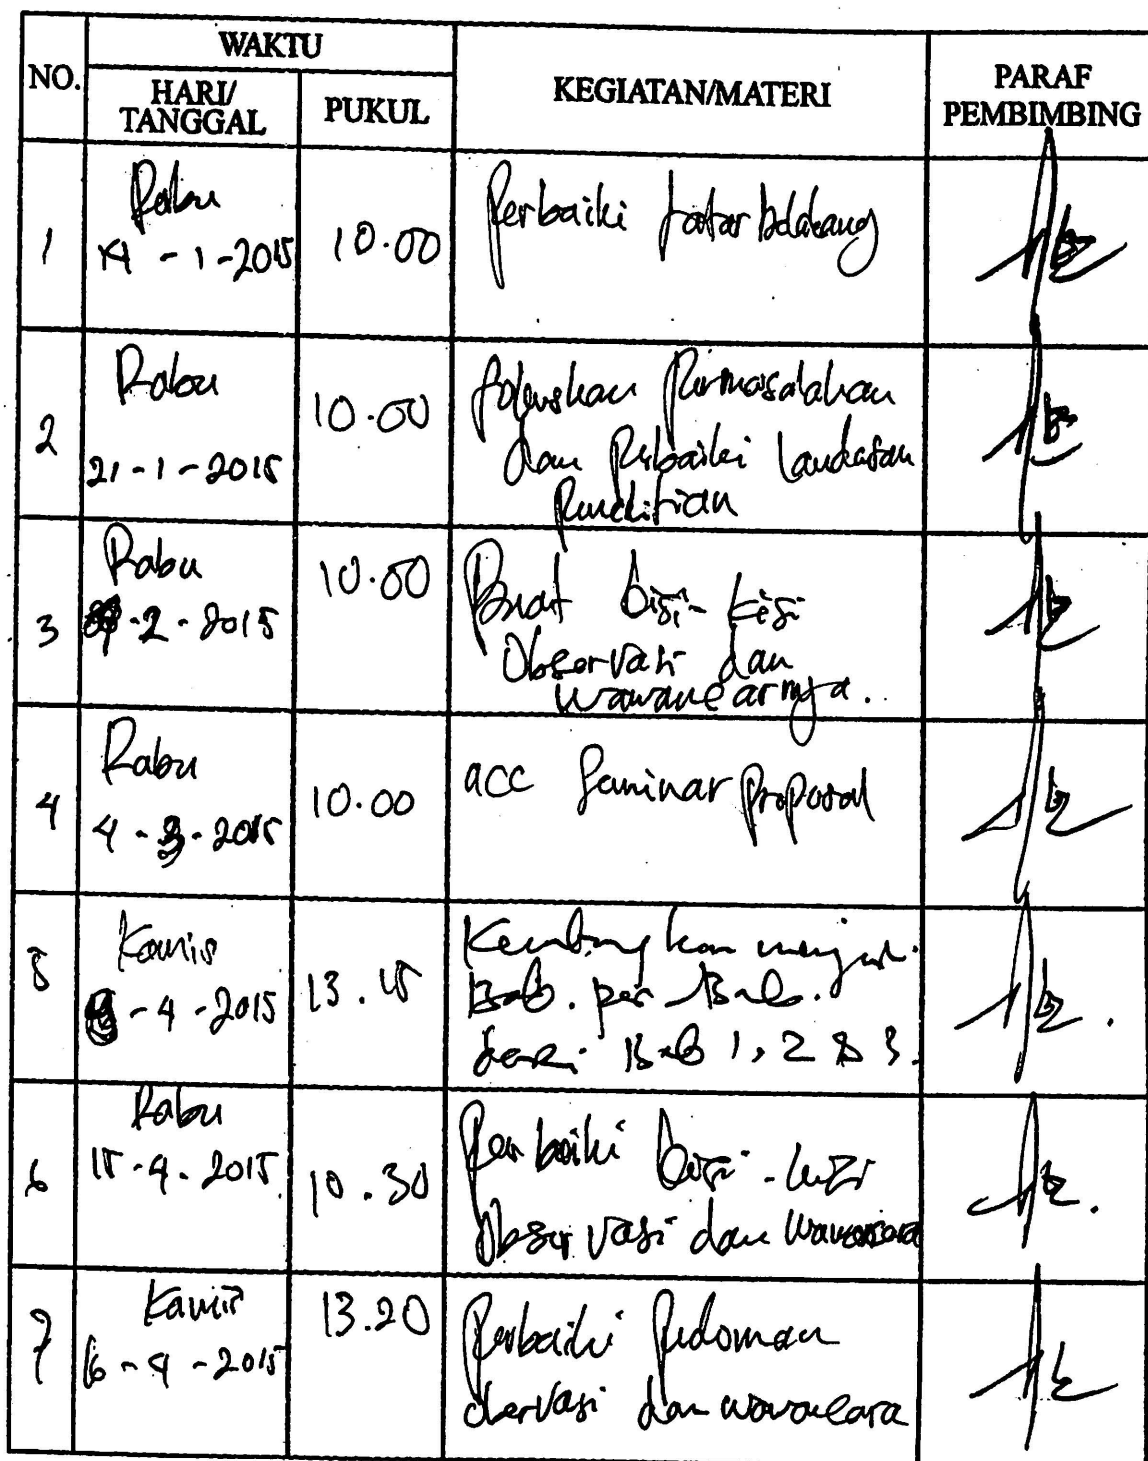 NO. WAKTU KEGIATAN/MATERI PARAF PEMBIMBING
HARI/TANGGAL PUKUL
1 Rabu 14 - 1 - 2015 10.00 Perbaiki Latar belakang
2 Rabu 21 - 1 - 2015 10.00 Permasalahan
dan Perbaiki Landasan
Penelitian
3 Rabu - 2 - 2015 10.00 Buat kisi-kisi
Observasi dan
wawancaranya.
4 Rabu 4 - 3 - 2015 10.00 acc Seminar Proposal
5 Kamis - 4 - 2015 13.15 Kembangkan
Bab. per Bab.
dari Bab 1, 2 & 3.
6 Rabu 15 - 4 - 2015 10.30 Perbaiki kisi-kisi
Observasi dan wawancara
7 Kamis - 4 - 2015 13.20 Perbaiki Pedoman
observasi dan wawancara